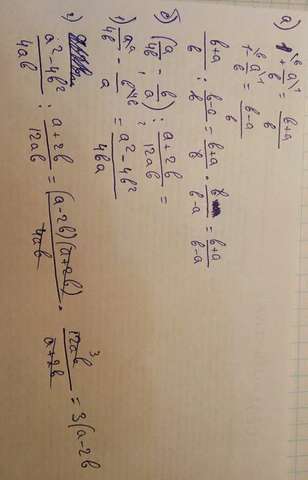 а)
1^{\b} + a^{\1}/b = b+a / b
1^{\b} - a^{\1}/b = b-a / b
b+a / b : b-a / b = b+a / b · b / b-a = b+a / b-a
б) (a/4b - b/a) : a+2b / 12ab =
1) a^{\a}/4b - b^{\4b}/a = a² - 4b² / 4ba
2) a² - 4b² / 4ab : a+2b / 12ab = (a-2b)(a+2b) / 4ab · 12ab ³ / a+2b = 3(a-2b